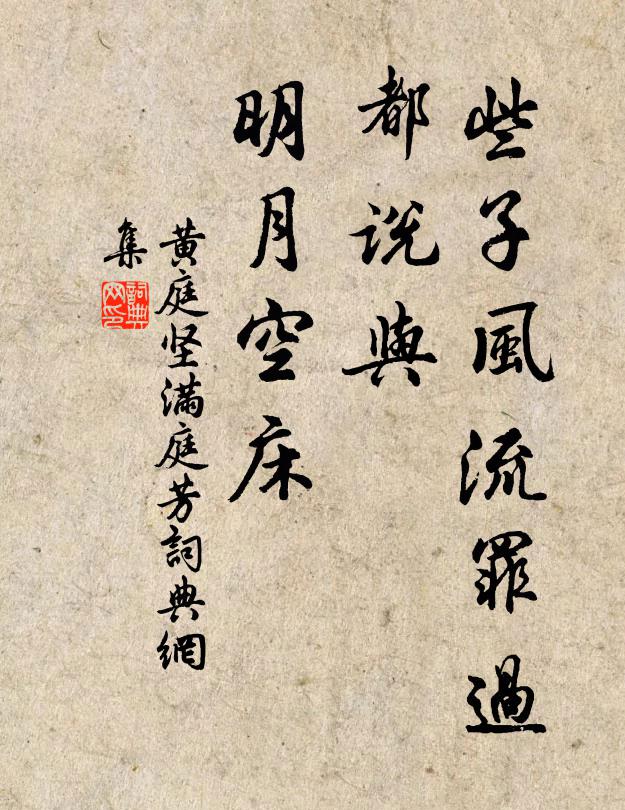 些子風流罪過
都説與
明月空床
黄庭坚滿庭芳詞典網
集
詞典
网印